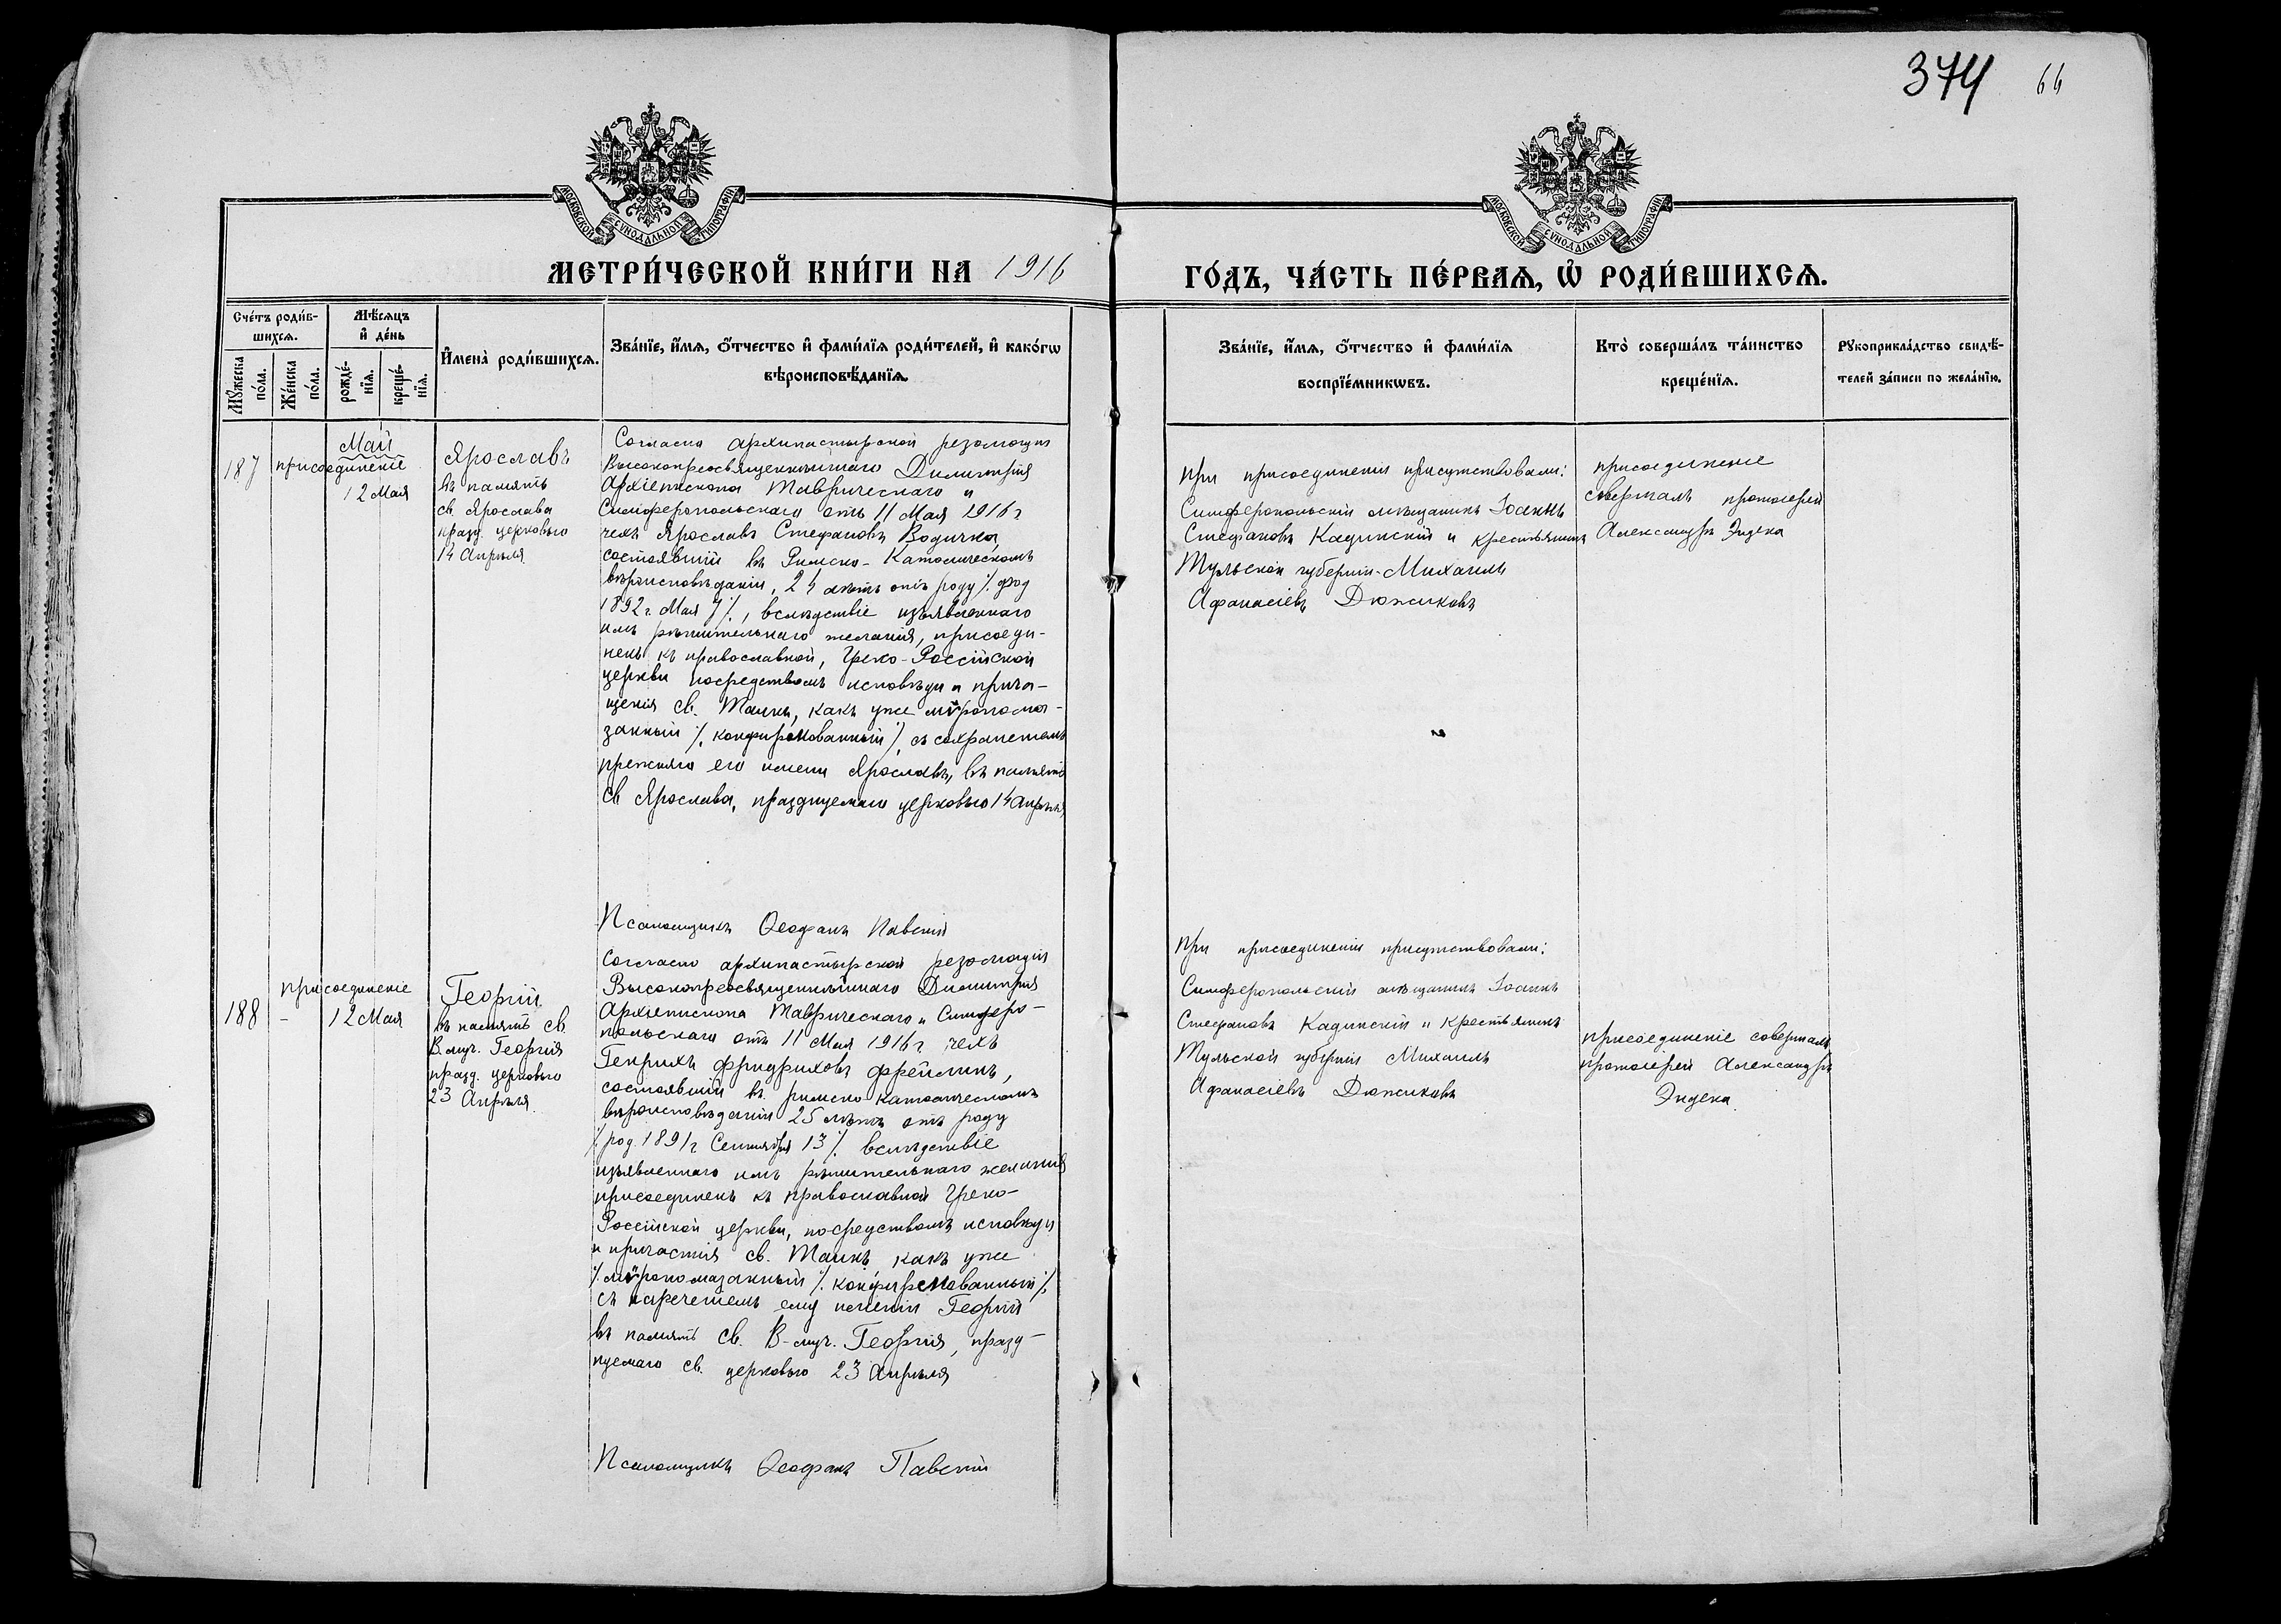 374 64
МОСКОВСКОЙ СѴНОДАЛЬНОЙ ТИПОГРАФІИ
МОСКОВСКОЙ СѴНОДАЛЬНОЙ ТИПОГРАФІИ
МЕТРИ́ЧЕСКОЙ КНИ́ГИ НА 1916
ГО́ДЪ, ЧА́СТЬ ПЕ́РВАѦ, Ѽ РОДИ́ВШИХСѦ.
Сче́тъ роди́в-
шихсѧ.
Мꙋ́жеска
по́ла.
Же́нска
по́ла.
Мѣ́сѧцъ
и҆ де́нь
рожде́-
нїѧ.
креще́-
нїѧ.
И҆мена̀ роди́вшихсѧ.
Зва́нїе, и҆́мѧ, ѻ҆́тчество и҆ фами́лїѧ роди́телей, и҆ како́гѡ
вѣроисповѣ́данїѧ.
Зва́нїе, и҆́мѧ, ѻ҆́тчество и҆ фами́лїѧ
воспрїе́мникѡвъ.
Кто̀ соверша́лъ та́инство
креще́нїѧ.
Рꙋкоприкла́дство свидѣ́-
телей за́писи по жела́нїю.
187
присоединеніе
Май
12 Мая
Ярославъ
въ память
св. Ярослава
празд. церковью
14 Апрѣля
Согласно архипастырской резолюціи
Высокопреосвященнѣйшаго Димитрія
Архіепископа Таврическаго и
Симферопольскаго отъ 11 Мая 1916 г
чехъ Ярославъ Стефановъ Водичка,
состоявшій въ Римско-Католическомъ
вѣроисповѣданіи, 24 лѣтъ отъ роду /. род
1892 г. Мая 7 /., вслѣдствіе изъявленнаго
имъ рѣшительнаго желанія, присоеди-
ненъ къ православной, Греко-Россійской
церкви посредствомъ исповѣди и прича-
щенія св. Таинъ, какъ уже мѵропома-
занный /. конфирмованный /. съ сохраненіемъ
прежняго его имени Ярославъ, въ память
св Ярослава, празднуемаго церковью 14 Апрѣля
Псаломщикъ Ѳеофанъ Павскій
При присоединеніи присутствовали:
Симферопольскій мѣщанинъ Іоаннъ
Стефановъ Кадинскій и крестьянинъ
Тульской губерніи Михаилъ
Афанасіевъ Дюжиковъ
присоединеніе
совершалъ протоіерей
Александръ Эндека
188
-
присоединеніе
12 Мая
Георгій
въ память св.
В.муч. Георгія
празд. церковью
23 Апрѣля.
Согласно архипастырской резолюціи
Высокопреосвященнѣйшаго Димитрія
Архіепископа Таврическаго и Симферо-
польскаго отъ 11 Мая 1916 г. чехъ
Генрихъ Фридриховъ Фрейлихъ,
состоявшій въ римско католическомъ
вѣроисповѣданіи 25 лѣтъ отъ роду
/. род. 1891 г Сентября 13 /. вслѣдствіе
изъявленнаго имъ рѣшительнаго желанія
присоединенъ къ православной Греко-
Россійской церкви, посредствомъ исповѣди
и причастія св. Таинъ, какъ уже
/. мѵропомазанный /. конфирмованный /.
съ нареченіемъ ему имени Георгій
въ память св. В-муч. Георгія, празд-
нуемаго св. церковью 23 Апрѣля
Псаломщикъ Ѳеофанъ Павскій
При присоединеніи присутствовали:
Симферопольскій мѣщанинъ Іоаннъ
Стефановъ Кадинскій и крестьянинъ
Тульской губерніи Михаилъ
Афанасіевъ Дюжиковъ
присоединеніе совершалъ
протоіерей Александръ
Эндека